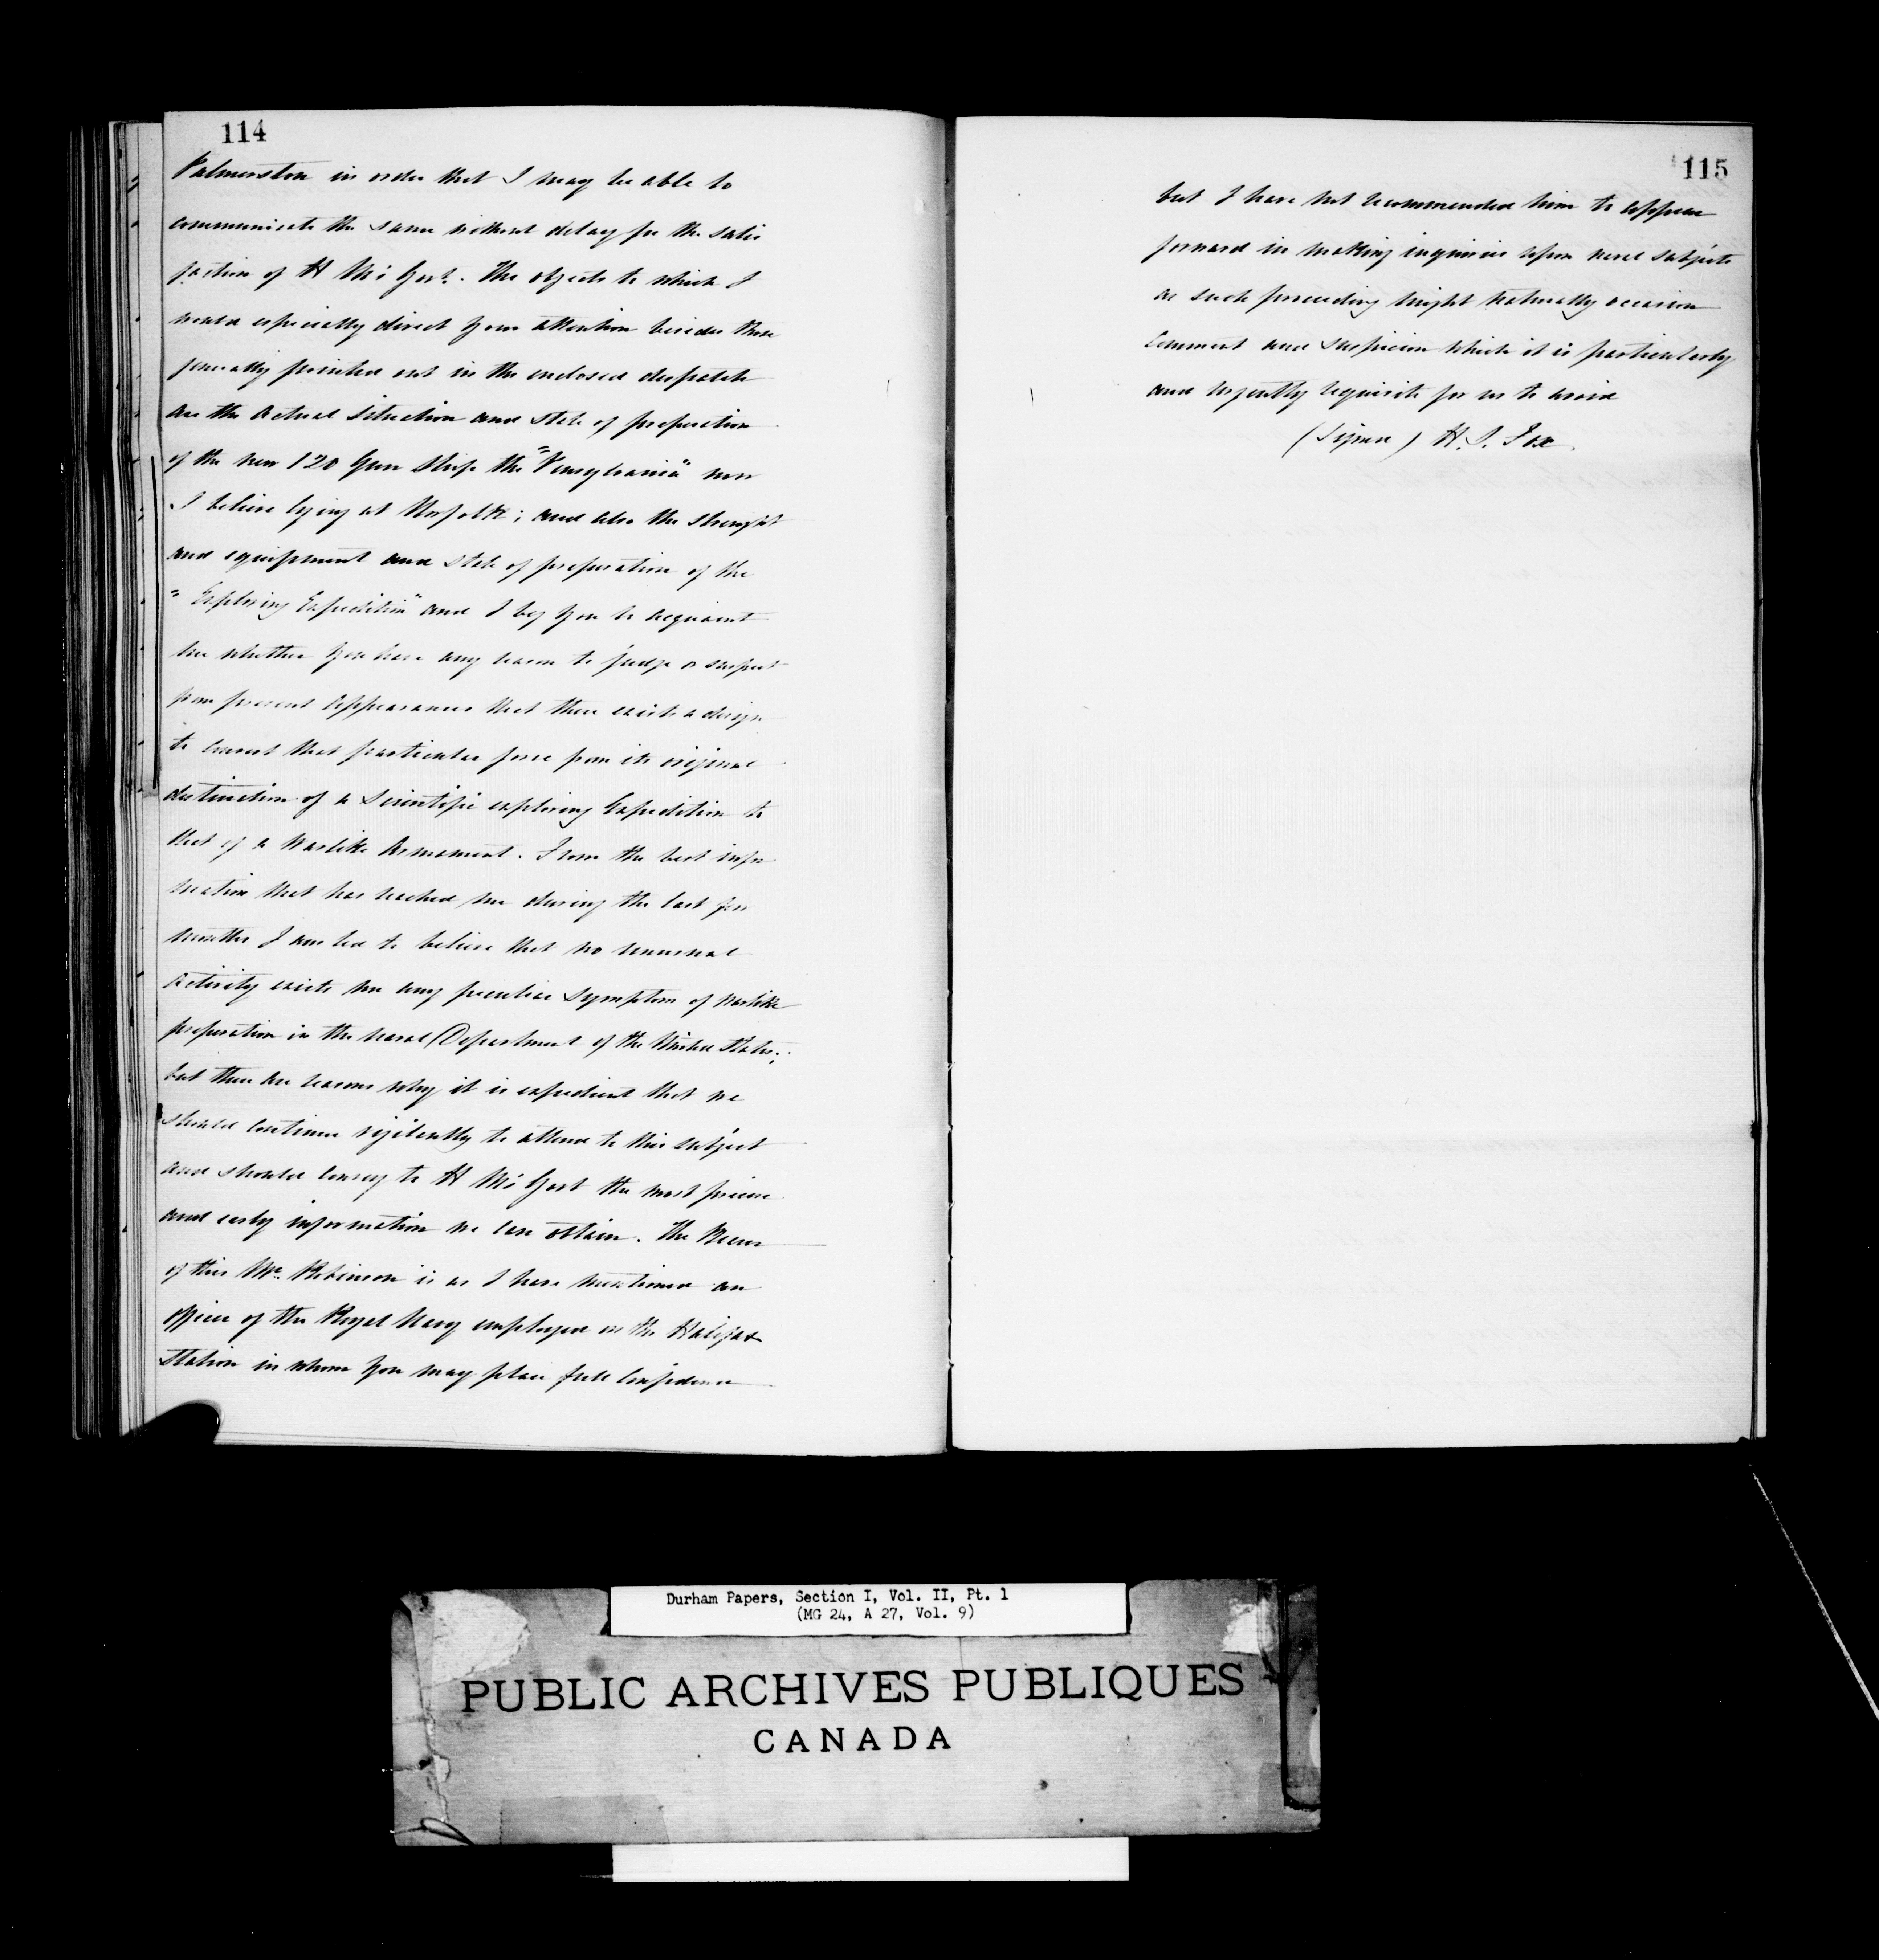 114
Palmerston in order that I may be able to
communicate the same without delay for the satis
faction of H M's Govt. The objects to which I
would especially direct your attention besides those
generally pointed out in the enclosed despatch
are the actual situation and state of preparation
of the new 120 Gun Ship the "Pensylvania" now
I believe lying at Norfolk; and also the strenght
and equipment and state of preparation of the
"Exploring Expedition" and I beg you to acquaint
me whether you have any reason to judge or suspect
from present appearances that there exists a design
to convert that particular force from its original
destination of a Scientific exploring Expedition to
that of a Warlike Armament. From the best infor
mation that has reached me during the last few
months I am led to believe that no unusual
activity exists nor any peculiar symptom of warlike
preparation in the naval Department of the United States;
but there are reasons why it is expedient that we
should continue vigilantly to attend to this subject
and should convey to H M's Govt the most precise
and early information we can obtain. The Bearer
of this Mr. Robinson is as I have mentioned an
officer of the Royal Navy employed on the Halifax
station in whom you may place full confidence
115
but I have not recommended him to appear
forward in making inquiries upon naval subjects
as such proceeding might naturally occasion
comment and suspicion which it is particularly
and urgently requisite for us to avoid
(Signed) H. S. Fox.
Durham Papers, Section I, Vol. II, Pt. 1
(MG 24, A 27, Vol. 9)
PUBLIC ARCHIVES PUBLIQUES
CANADA